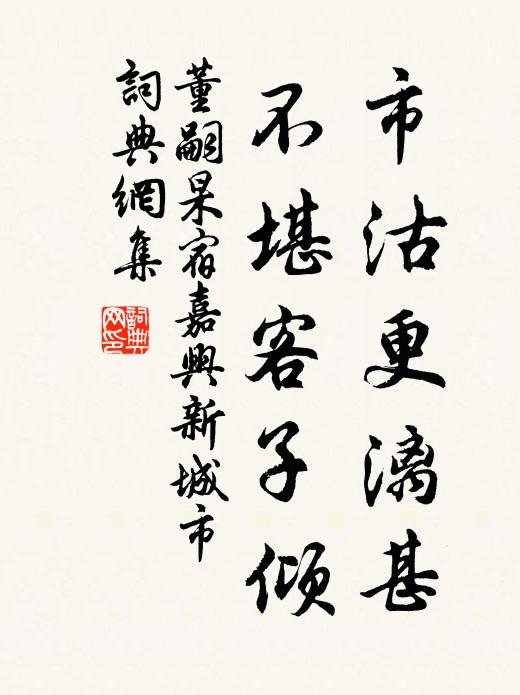 市沽更漓甚
不堪客子倾
董嗣杲宿嘉興新城市
詞典網集
詞典
网印